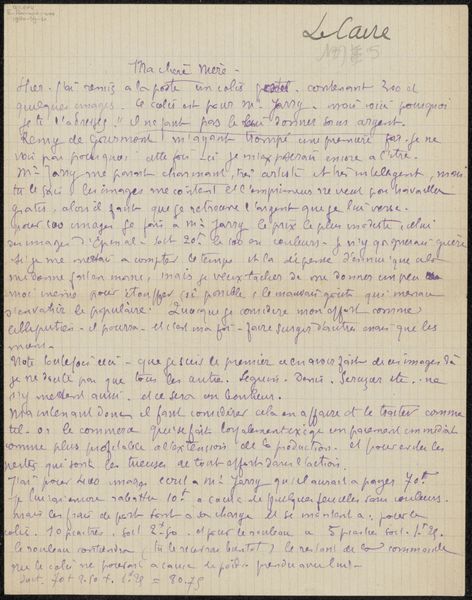 Le Caire
Ma chère mère -
Hier j'ai remis à la poste un colis postal contenant 200 et
quelques images. Ce colis est pour Mr Jarry - mais voici pourquoi
je te l'adresse. il ne faut pas le lui donner sans argent.
Remy de Gourmont m'ayant trompé une première fois je ne
vois pas pourquoi cette fois-ci je m'exposerais encore à l'être.
Mr Jarry me paraît charmant, très artiste et très intelligent, mais
tu le sais les images me coûtent et l'imprimeur ne veut pas travailler
gratis, alors il faut que je retrouve l'argent que je lui verse.
pour 100 images je fais à Mr Jarry le prix le plus modeste, celui
des images d'Epinal - soit 20f le 100 en couleurs - je n'y gagnerais guère
si je me mettais à compter le temps et la dépense d'ennui que cela
me donne, mais je veux tacher de me donner un peu
moi même pour étouffer si possible le mauvais goût qui menace
d'envahir le populaire. Quoique je considère mon effort comme
lilliputien - il pourra - et c'est ma foi - faire surgir d'autres mains que les
miennes.
Note toutefois ceci - que je suis le premier à en avoir fait de ces images là
je ne doute pas que tous les autres. Seguin. Denis. Serusier etc. ne
s'y mettent aussi. et ce sera un bonheur.
Maintenant donc il faut considérer cela en affaire et le traiter comme
tel. or le commerce qui se fait loyalement exige un paiement immédiat
comme plus profitable à l'extension de la production. et pour éviter les
pertes qui sont les tueuses de tout effort dans l'action.
J'ai pour 400 images écrit à Mr Jarry qu'il aurait à payer 70f.
Je lui ai encore rabattu 10f à cause de quelques feuilles sans couleurs.
Mais les frais de port sont à sa charge. Ils se montent à pour le
colis. 10 piastres. soit 2f.50. et pour le rouleau à 5 piastres soit. 1f.25.
le rouleau contiendra (tu le recevras bientôt) le restant de la commande
que le colis ne pouvait à cause du poids prendre avec lui -
Soit. 70 + 2.50 + 1.25 = 80.75